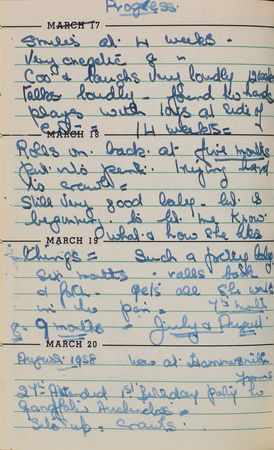 Progress.
MARCH 17
Smiles at 4 weeks -
Very energetic &
Coo & laughs very loudly 12 weeks
Talks loudly - found his hands
plays with toys at side of
MARCH 18
14 weeks =
Rolls on back at five months
Put in his pen: trying hard
to crawl =
Still very good baby - but is
beginning to let me know
what & how she likes
MARCH 19
things = Such a pretty baby
Six months - rolls back
& forth - gets all she wants
in the pen = 7th month
& 9 months = July & August
MARCH 20
August 1958 now at Hammersmith
27th Attended 1st Birthday party for
Auchincloss =
Sits up - crawls.